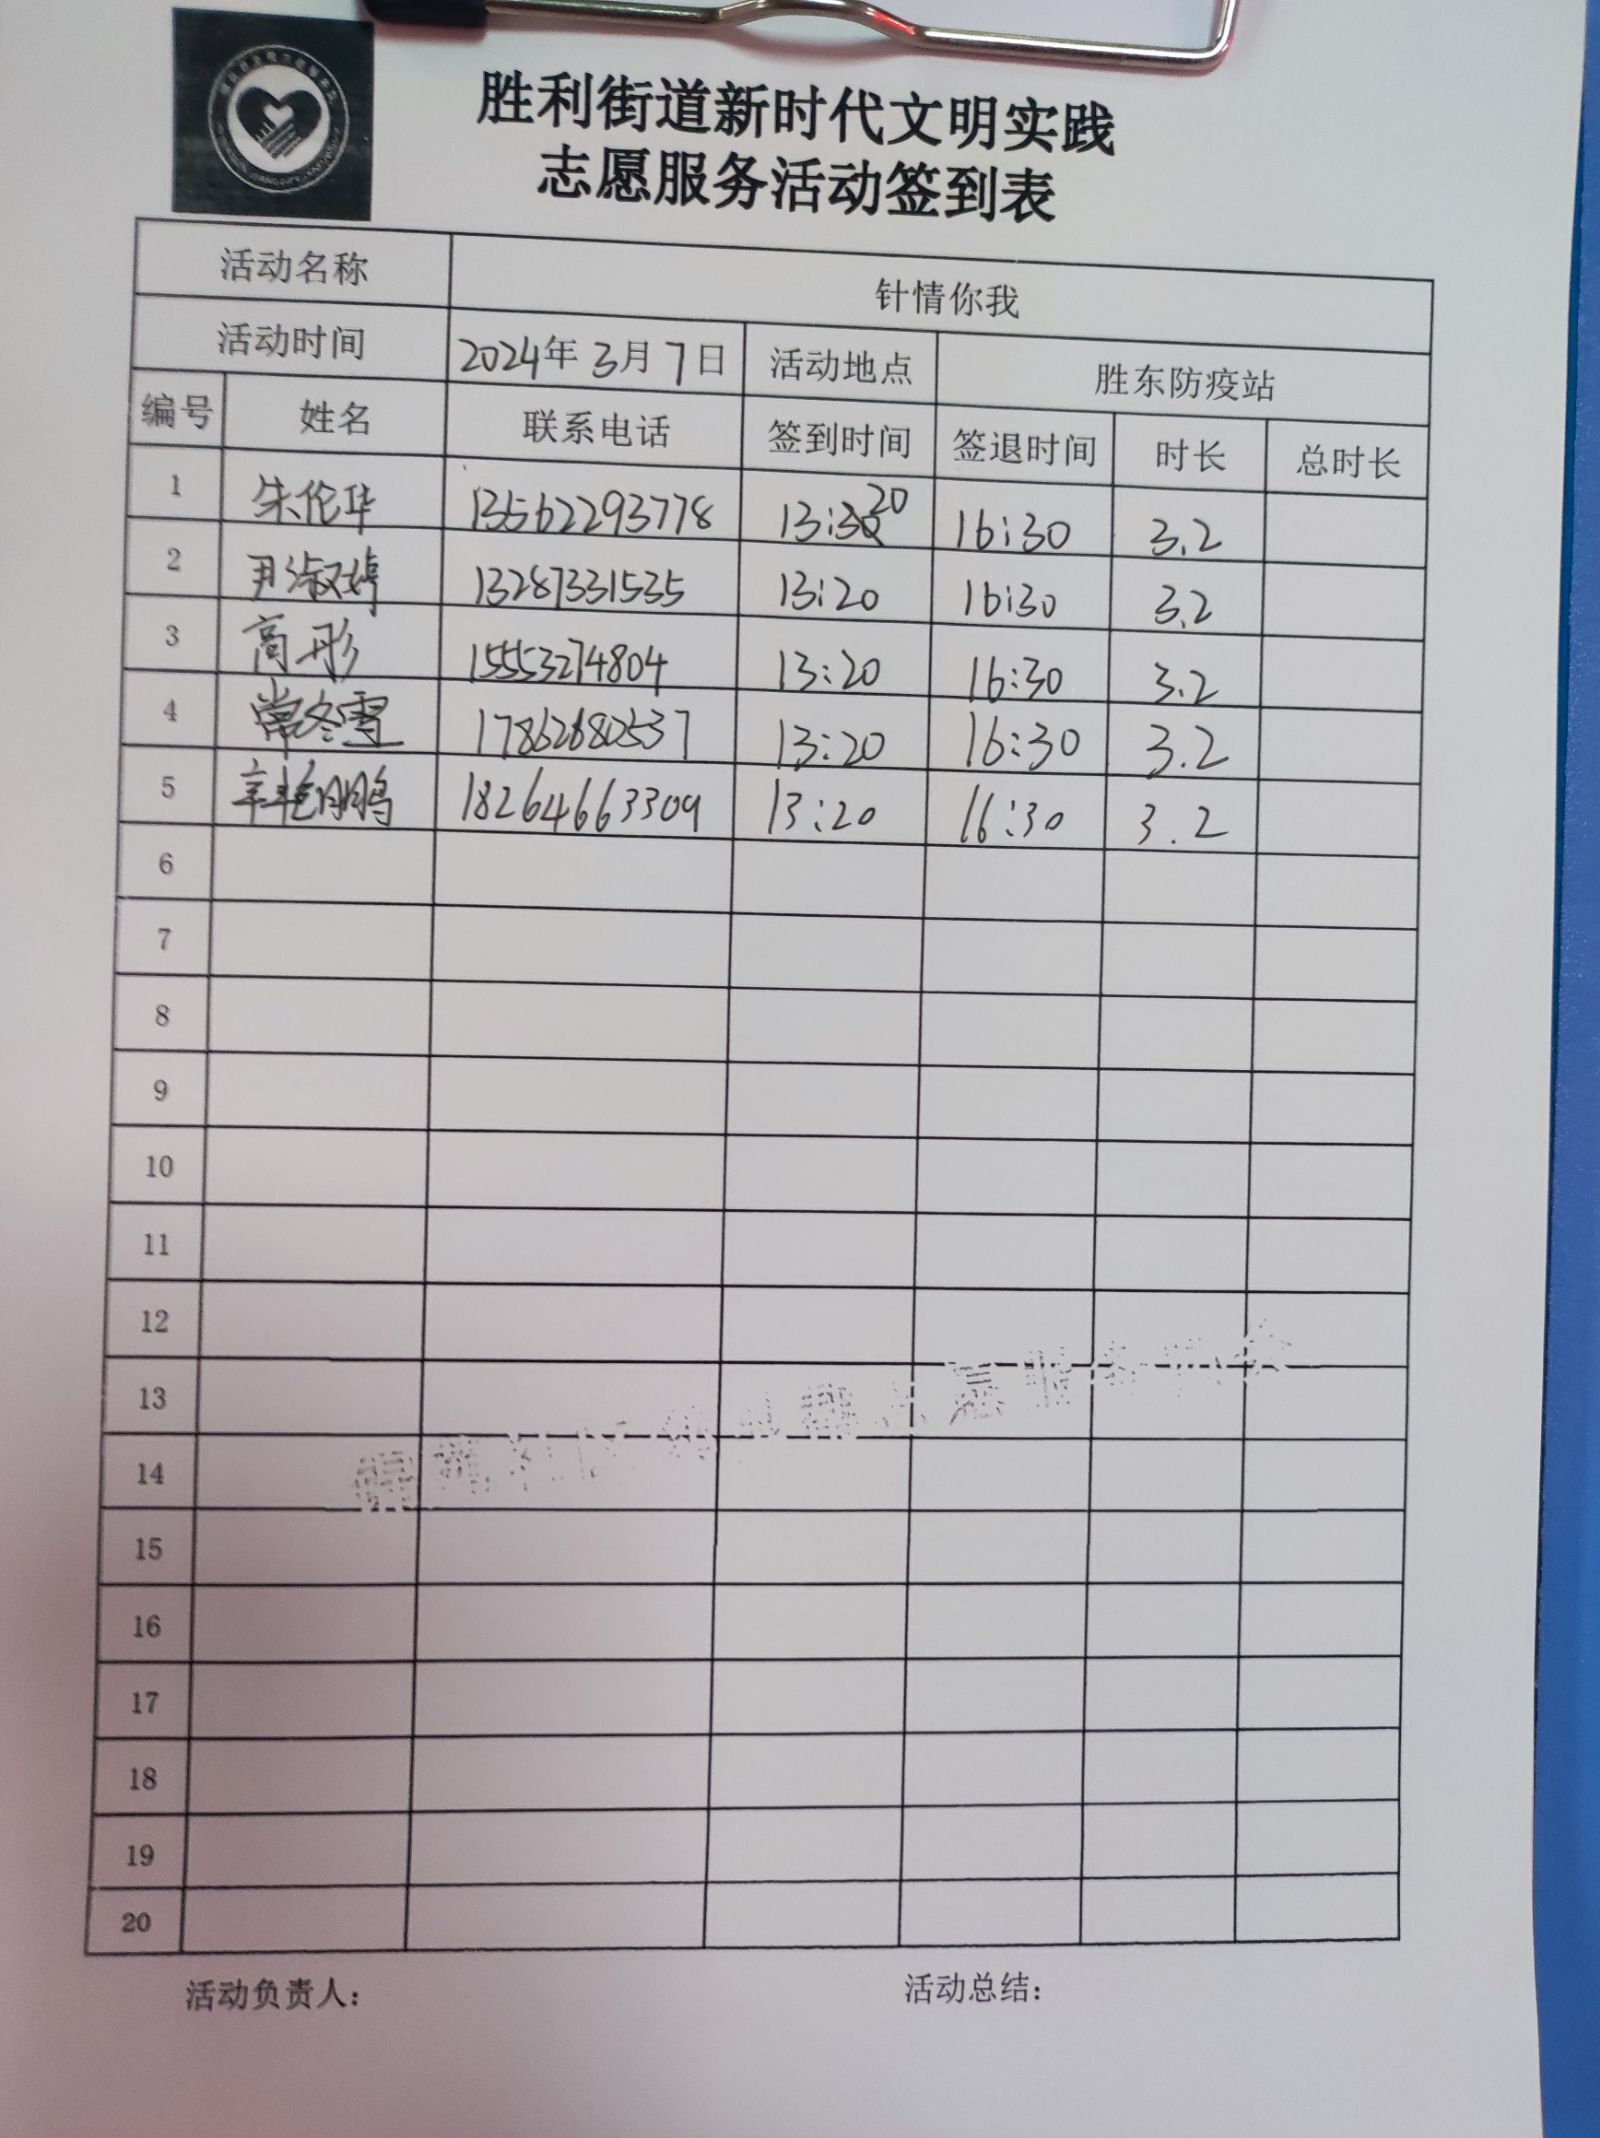 胜利街道新时代文明实践
志愿服务活动签到表
活动名称 针情你我
活动时间 2024年3月7日 活动地点 胜东防疫站
编号 姓名 联系电话 签到时间 签退时间 时长 总时长
1 朱伦华 13562293778 13:20 16:30 3.2
2 尹淑婷 13287331535 13:20 16:30 3.2
3 高彤 15553274804 13:20 16:30 3.2
4 常冬雪 17862680537 13:20 16:30 3.2
5 18264663309 13:20 16:30 3.2
6
7
8
9
10
11
12
13
14
15
16
17
18
19
20
活动负责人: 活动总结: